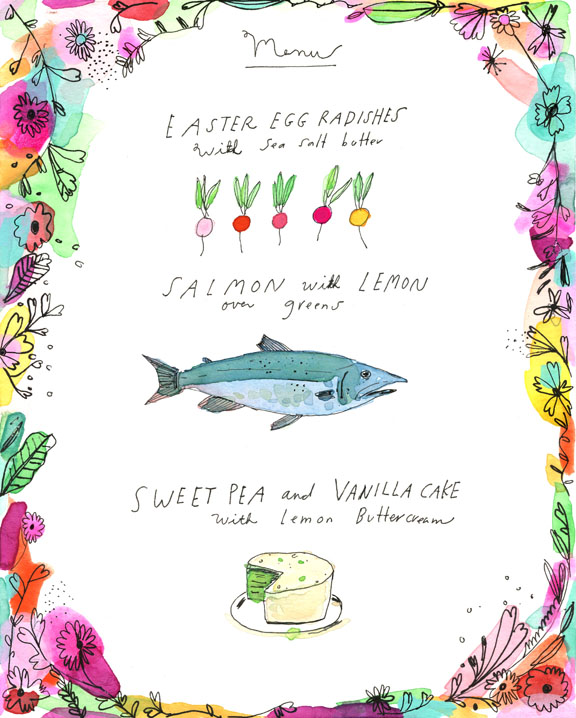 Menu
EASTER EGG RADISHES
with sea salt butter
SALMON with LEMON
over greens
SWEET PEA and VANILLA CAKE
with Lemon Buttercream